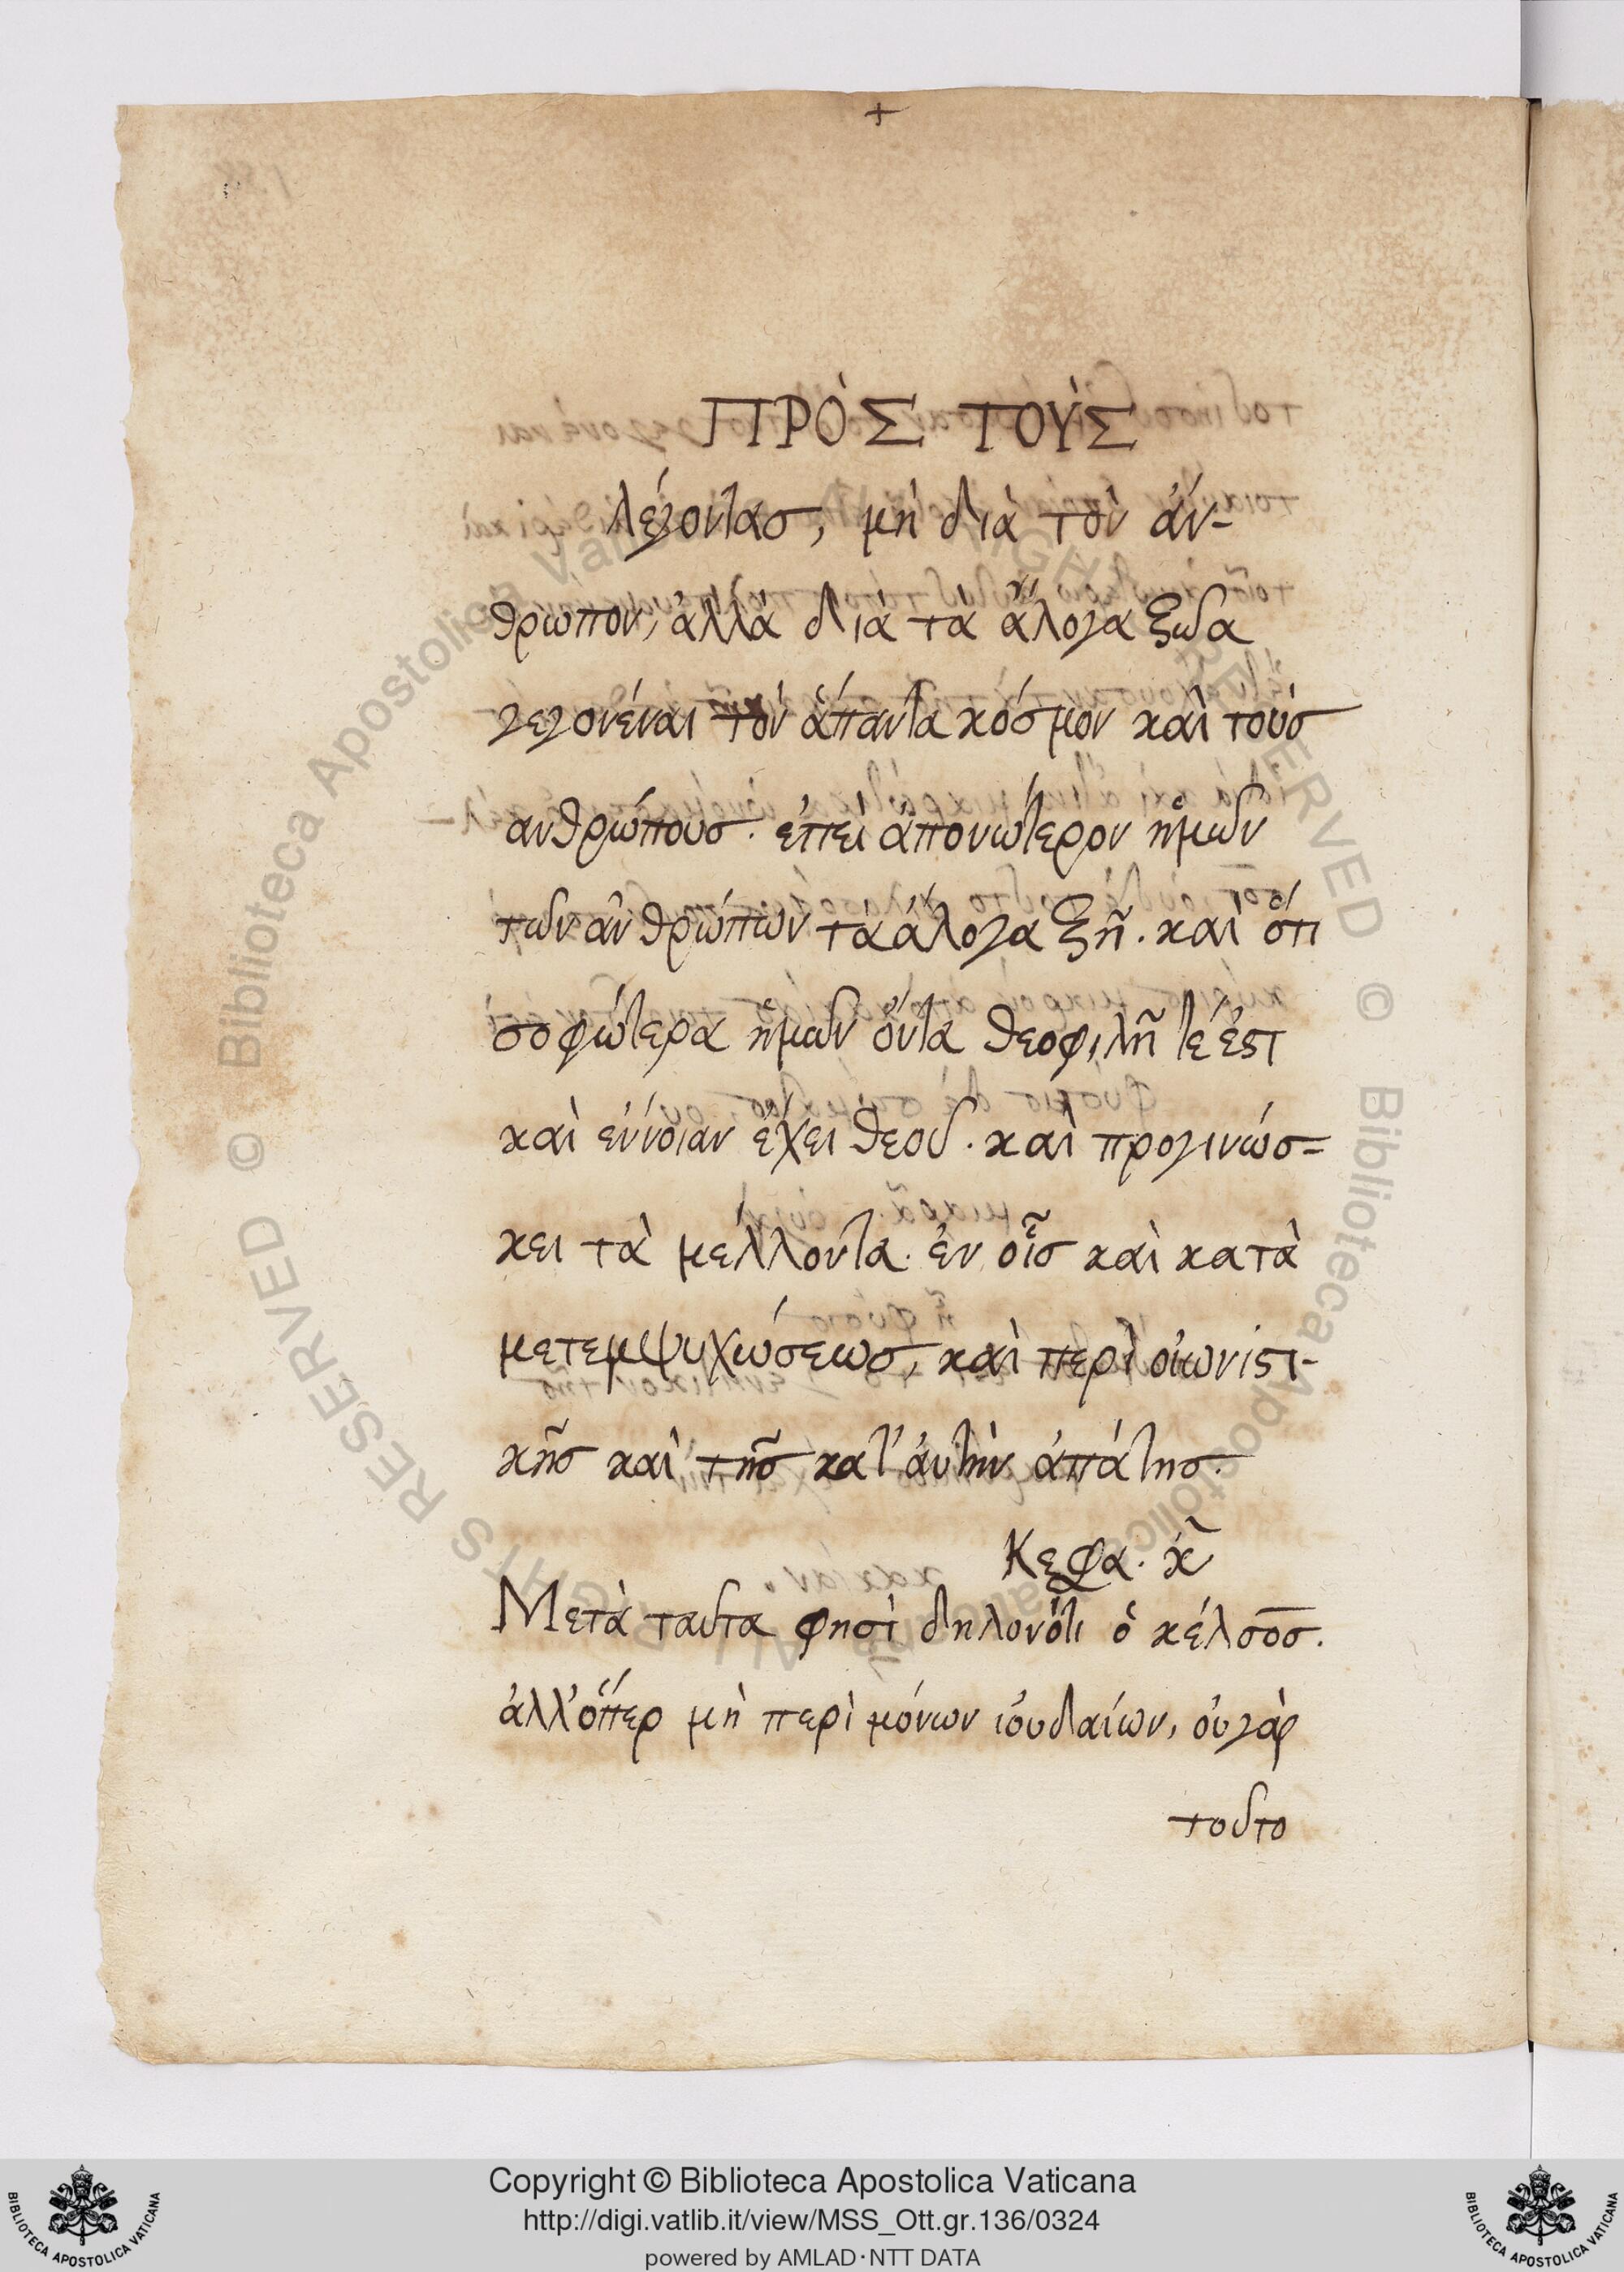 +
ΠΡῸΣ ΤΟῪΣ
λέγοντασ, μὴ διὰ τὸν ἄν-
θρωπον, ἀλλὰ διὰ τὰ ἄλογα ζῶα
γεγονέναι τὸν ἅπαντα κόσμον καὶ τοὺσ
ανθρώπουσ. ἐπεὶ ἀπονώτερον ἡμῶν
τῶν ἀνθρώπων τὰ ἄλογα ζῆ. καὶ ὅτι
σοφώτερα ἡμῶν ὄντα θεοφιλῆ τέ ἐστ
καὶ εὐνοιαν ἔχει θεοῦ. καὶ προγινώσ-
κει τὰ μέλλοντα. ἐν οἷσ καὶ κατὰ
μετεμψυχώσεωσ, καὶ περὶ οἰωνιστι-
κῆσ καὶ τῆσ κατ' ἀυτὴν ἀπάτησ.
Κεφα. κ
Μετὰ ταῦτα φησὶ δηλονότι ὁ κέλσοσ.
ἀλλ' ὅπερ μὴ περὶ μόνων ἰουδαίων, ὀυγὰρ
τοῦτο
© Biblioteca Apostolica Vaticana ALL RIGHTS RESERVED © Biblioteca Apostolica Vaticana ALL RIGHTS RESERVED
Copyright © Biblioteca Apostolica Vaticana
http://digi.vatlib.it/view/MSS_Ott.gr.136/0324
powered by AMLAD·NTT DATA
BIBLIOTECA APOSTOLICA VATICANA
BIBLIOTECA APOSTOLICA VATICANA